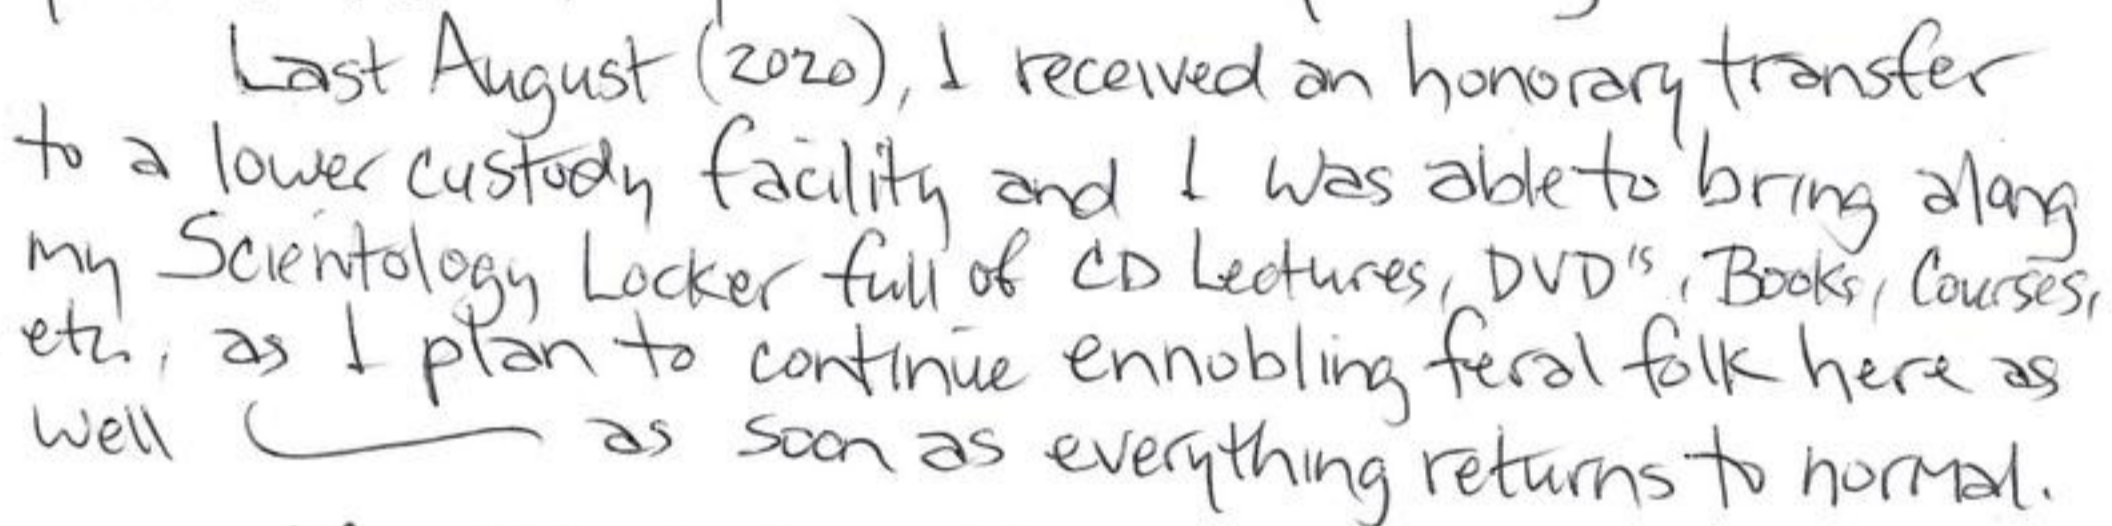 Last August (2020), I received an honorary transfer
to a lower custody facility and I was able to bring along
my Scientology Locker full of CD Lectures, DVD's, Books, Courses,
etc., as I plan to continue ennobling feral folk here as
well — as soon as everything returns to normal.